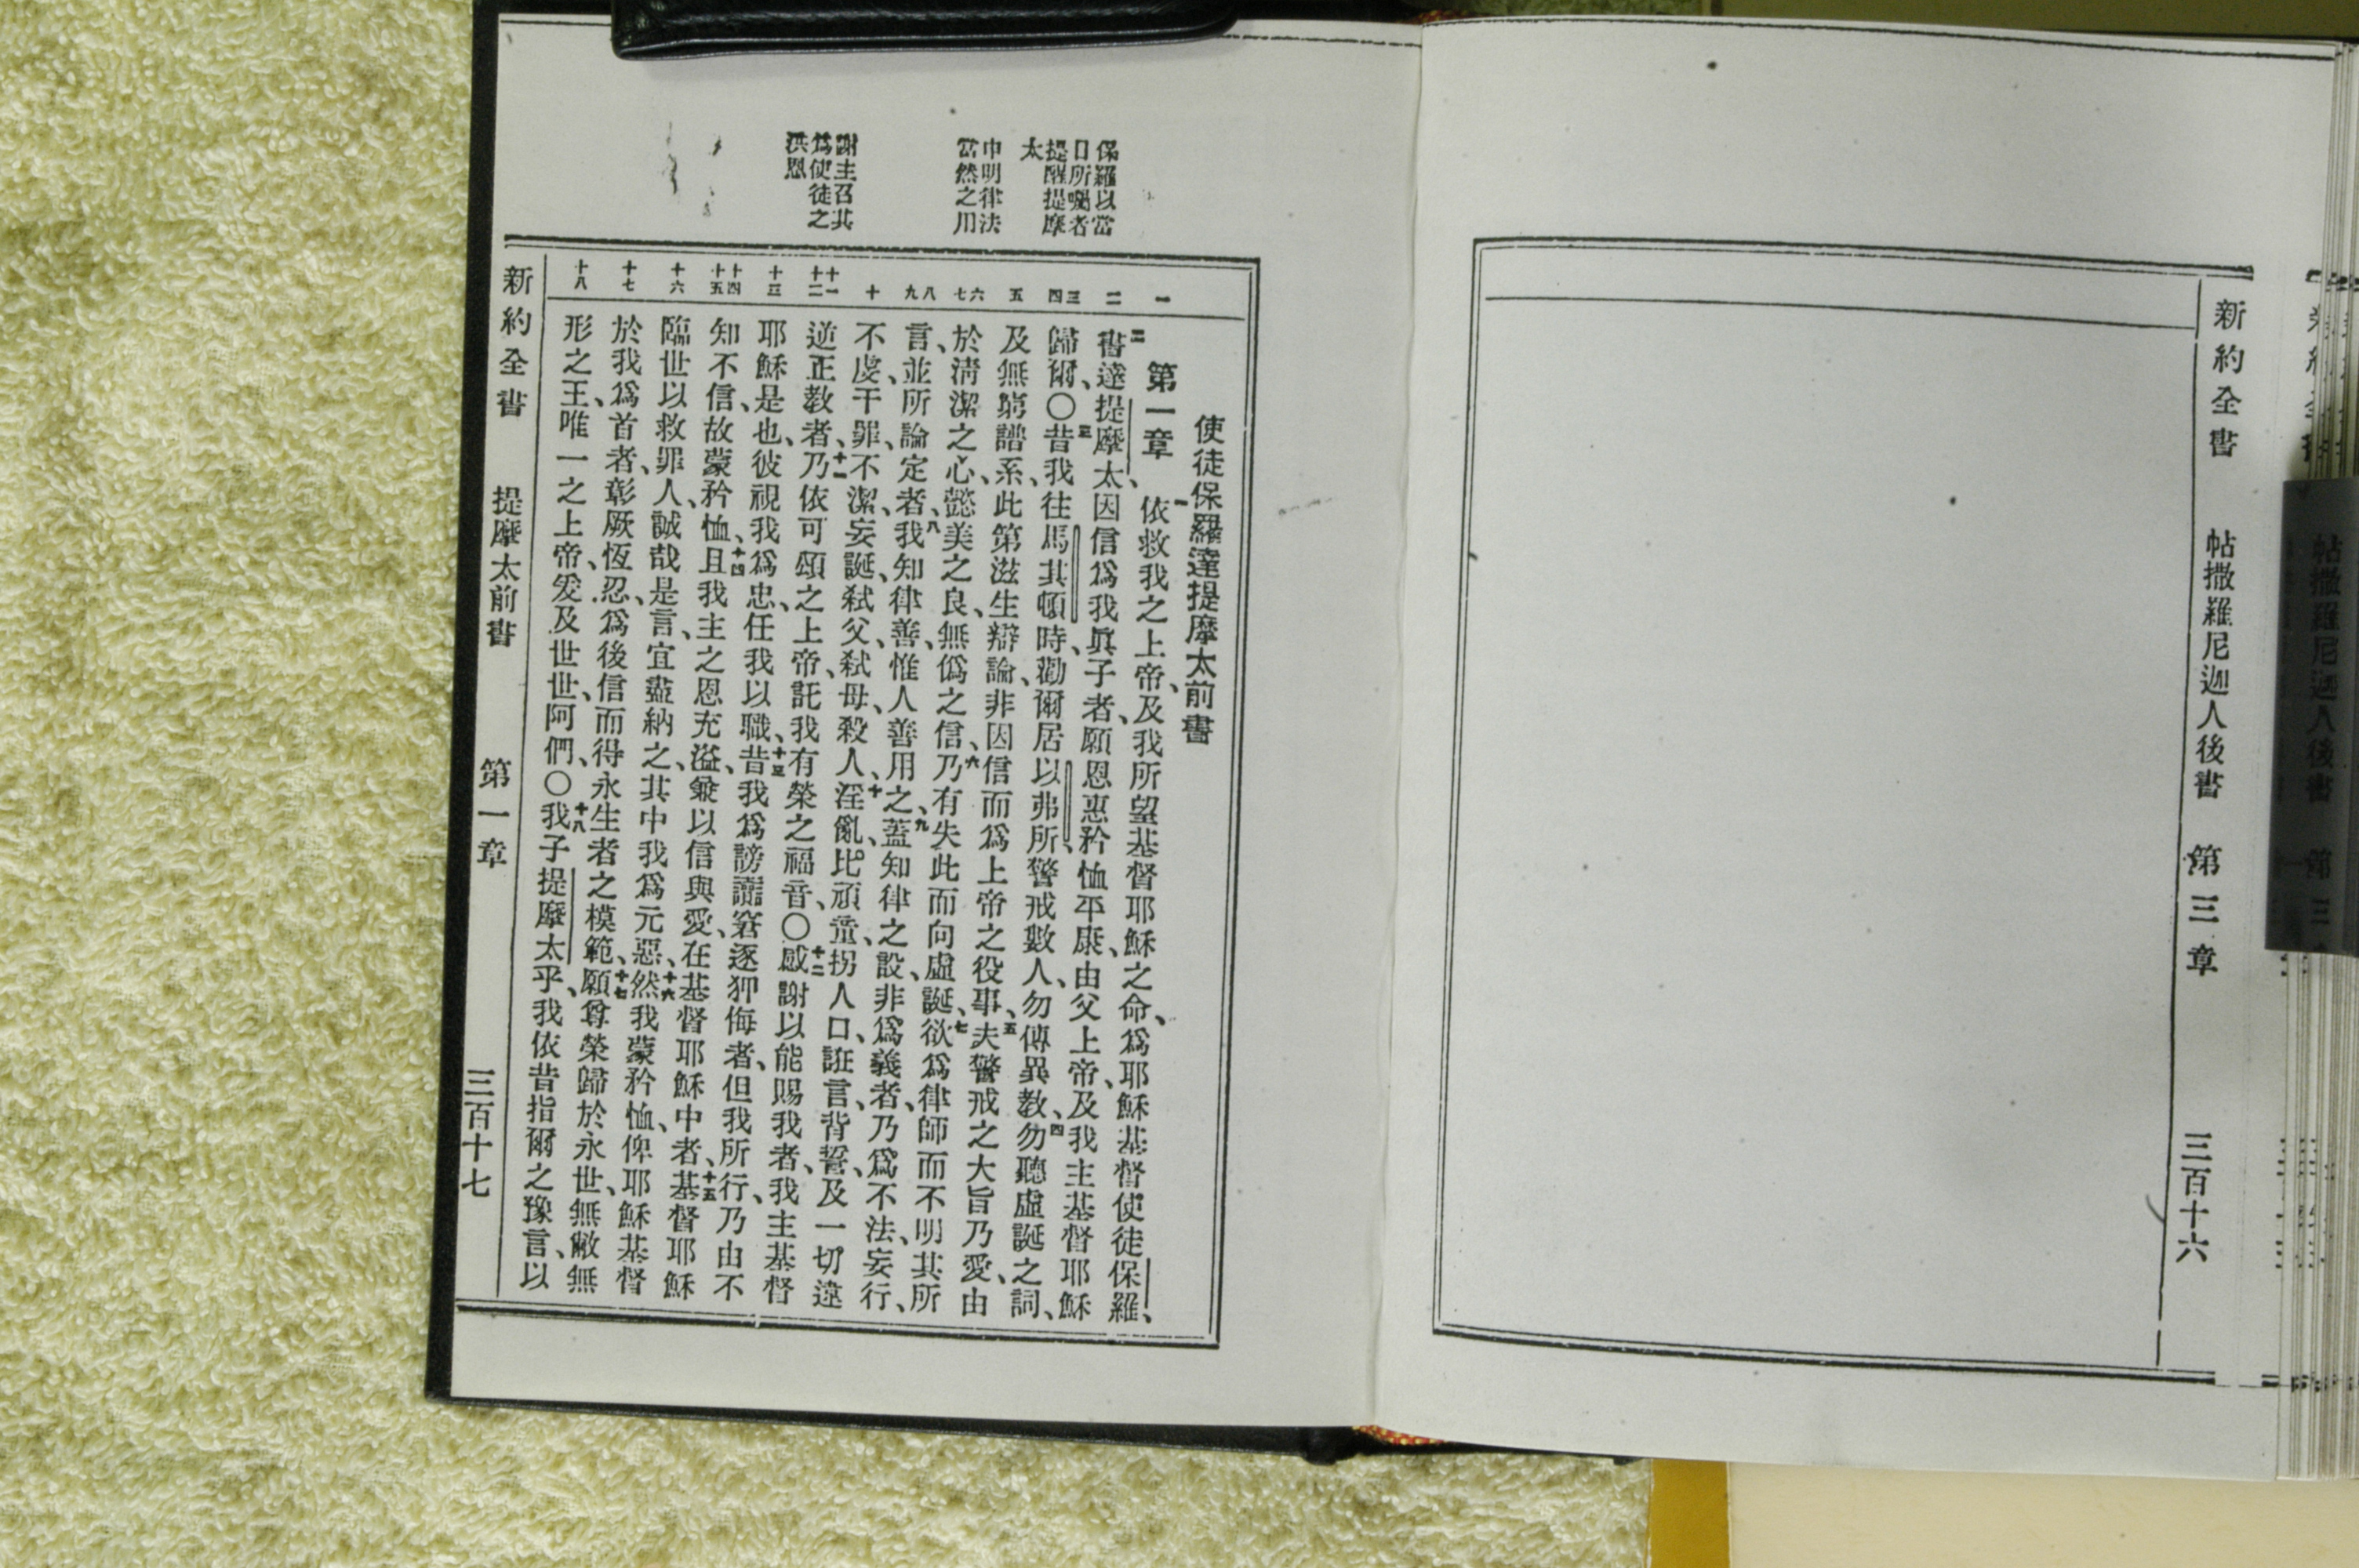 新約全書　帖撒羅尼迦人後書　第三章　三百十六
保羅以當
日所囑者
提醒提摩
太
申明律法
當然之用
謝主召其
爲使徒之
洪恩
一
二
三
四
五
六
七
八
九
十
十一
十二
十三
十四
十五
十六
十七
十八
使徒保羅達提摩太前書
第一章　一依救我之上帝、及我所望基督耶穌之命、爲耶穌基督使徒保羅、
二書達提摩太、因信爲我眞子者、願恩惠矜恤平康、由父上帝、及我主基督耶穌
歸爾、〇三昔我往馬其頓時、勸爾居以弗所、警戒數人、勿傳異教、四勿聽虛誕之詞、
及無窮譜系、此第滋生辯論、非因信而爲上帝之役事、五夫警戒之大旨乃愛、由
於淸潔之心、懿美之良、無僞之信、六乃有失此而向虛誕、七欲爲律師而不明其所
言、並所論定者、八我知律善、惟人善用之、九蓋知律之設、非爲義者、乃爲不法、妄行、
不虔、干罪、不潔、妄誕、弑父、弑母、殺人、十淫亂、比頑童、拐人口、誑言、背誓、及一切違
逆正教者、十一乃依可頌之上帝、託我有榮之福音、〇十二感謝以能賜我者、我主基督
耶穌是也、彼視我爲忠、任我以職、十三昔我爲謗讟窘逐狎侮者、但我所行、乃由不
知不信、故蒙矜恤、十四且我主之恩充溢、兼以信與愛、在基督耶穌中者、十五基督耶穌
臨世以救罪人、誠哉是言、宜盡納之、其中我爲元惡、十六然我蒙矜恤、俾耶穌基督
於我爲首者、彰厥恆忍、爲後信而得永生者之模範、十七願尊榮歸於永世、無敝無
形之王、唯一之上帝、爰及世世、阿們、〇十八我子提摩太乎、我依昔指爾之豫言、以
新約全書　提摩太前書　第一章　三百十七